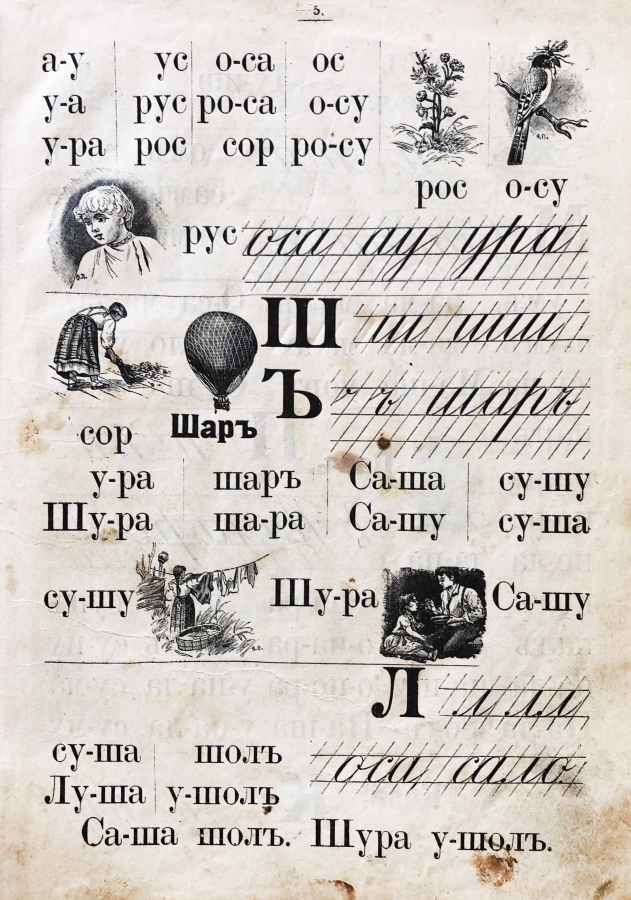 5.
а-у ус о-са ос
у-а рус ро-са о-су
у-ра рос сор ро-су
рос о-су
рус оса ау ура
Ш ш шш
Ъ ъ ъ шаръ
сор Шаръ
у-ра шаръ Са-ша су-шу
Шу-ра ша-ра Са-шу су-ша
су-шу Шу-ра Са-шу
Л л лл
су-ша шолъ оса сало
Лу-ша у-шолъ
Са-ша шолъ. Шура у-шолъ.